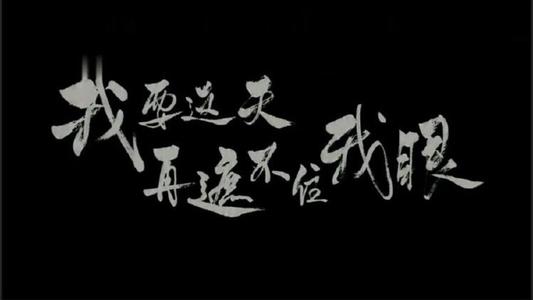 我要这天
再遮不住我眼